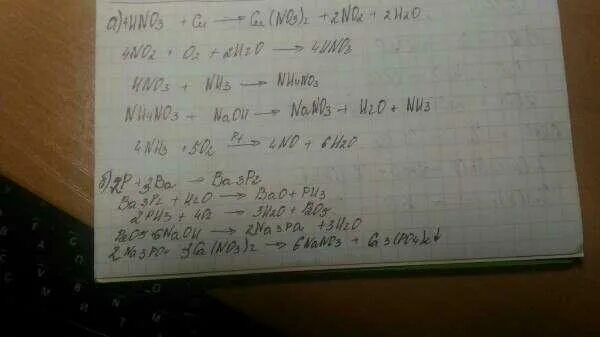 а) 4HNO3 + Cu → Cu(NO3)2 + 2NO2 + 2H2O
4NO2 + O2 + 2H2O → 4HNO3
HNO3 + NH3 → NH4NO3
NH4NO3 + NaOH → NaNO3 + H2O + NH3
4NH3 + 5O2 Pt → 4NO + 6H2O
б) 2P + 3Ba → Ba3P2
Ba3P2 + H2O → BaO + PH3
2PH3 + 4O2 → 3H2O + P2O5
P2O5 + 6NaOH → 2Na3PO4 + 3H2O
2Na3PO4 3Ca(NO3)2 → 6NaNO3 + Ca3(PO4)2↓